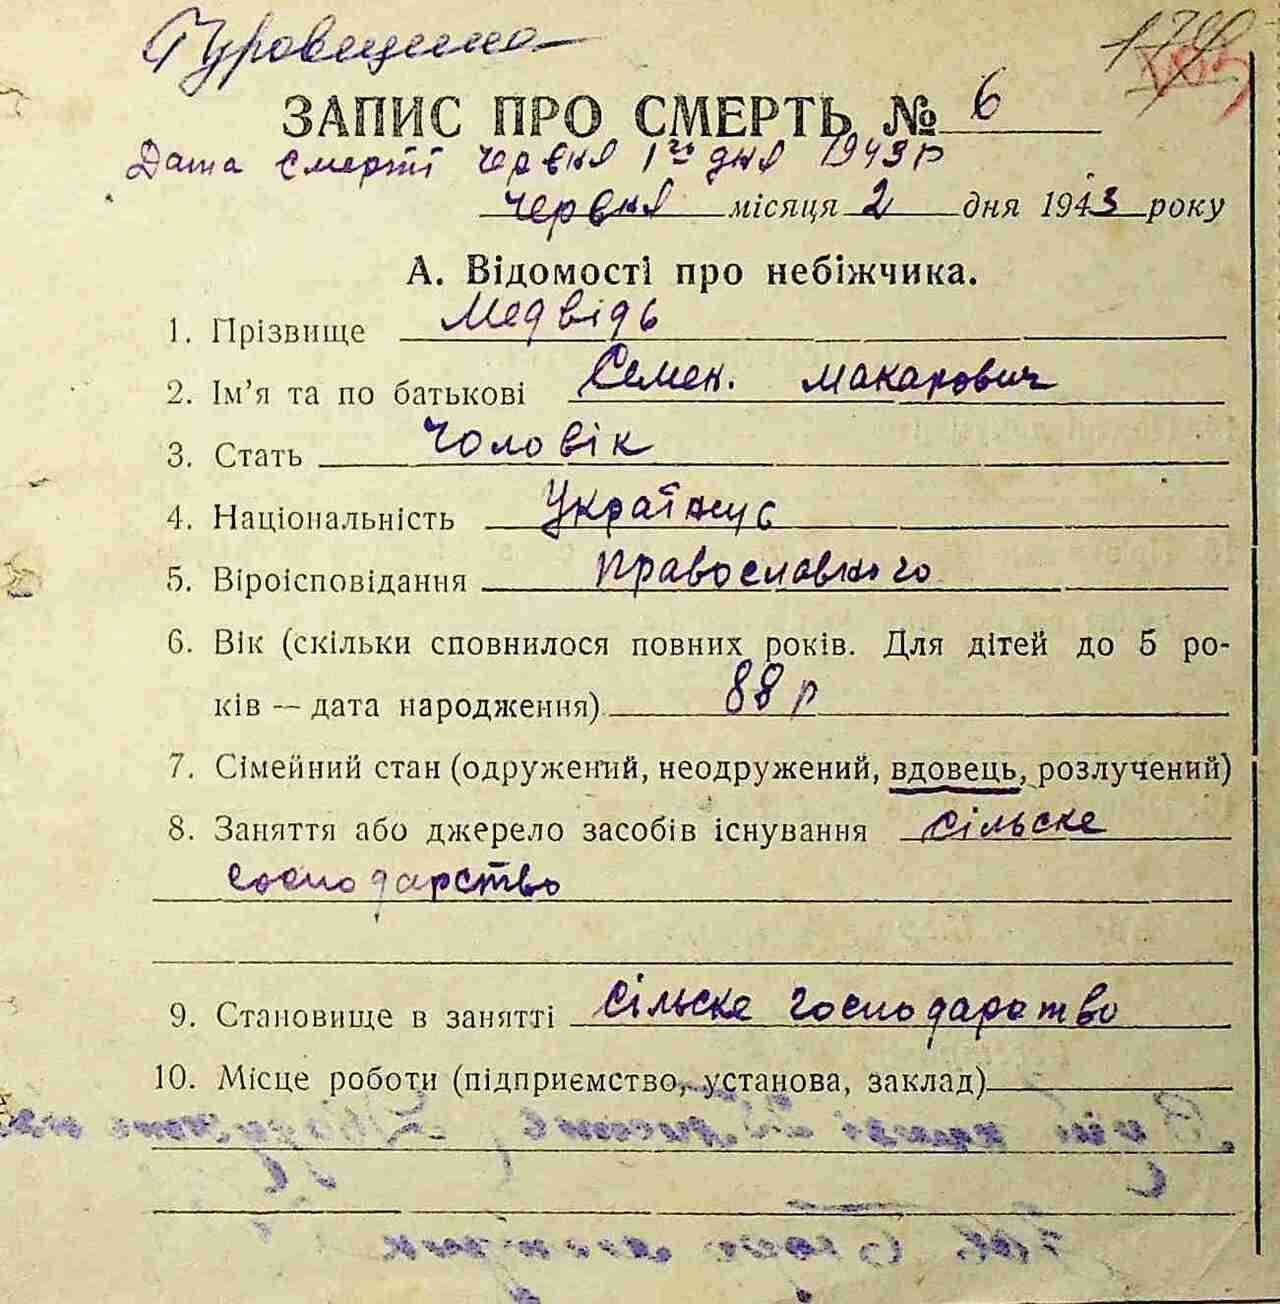 Гуровщина
ЗАПИС ПРО СМЕРТЬ № 6
Дата смерти червня 1го дня 1943 р
червня місяця 2 дня 1943 року
А. Відомості про небіжчика.
1. Прізвище Медвідь
2. Ім'я та по батькові Семен. Макарович
3. Стать Чоловік
4. Національність Українць
5. Віроісповідання православного
6. Вік (скільки сповнилося повних років. Для дітей до 5 ро-
ків — дата народження) 88 р
7. Сімейний стан (одружений, неодружений, вдовець, розлучений)
8. Заняття або джерело засобів існування сільске
господарство
9. Становище в занятті сільске господарство
10. Місце роботи (підприємство, установа, заклад)